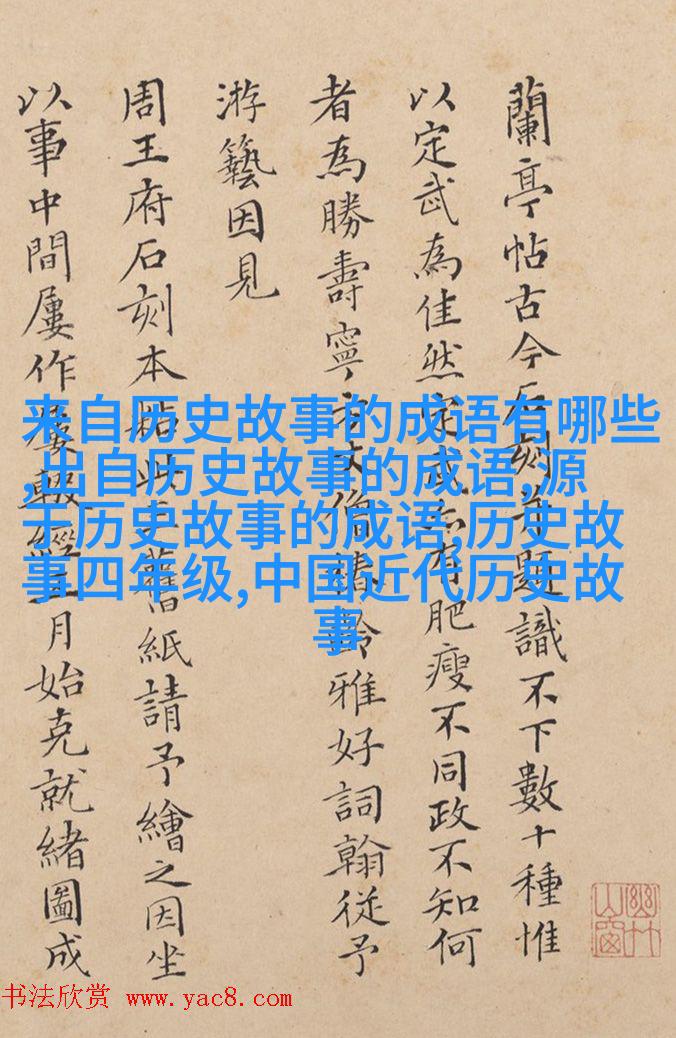 蘭亭帖古今石刻題識不下數十種惟
以定武為佳然定武亦有肥瘦不同政不知何
者為勝壽寧方丈僧齡雅好詞翰從予
游藝因見
周王府石刻本此舊紙請予繪之因坐
以事中間屢作屢輟經三月始克就緒圖成
幽竹山窗
来自历史故事的成语有哪些
,出自历史故事的成语,源
于历史故事的成语,历史故
事四年级,中国近代历史故
事
书法欣赏 www.yac8.com